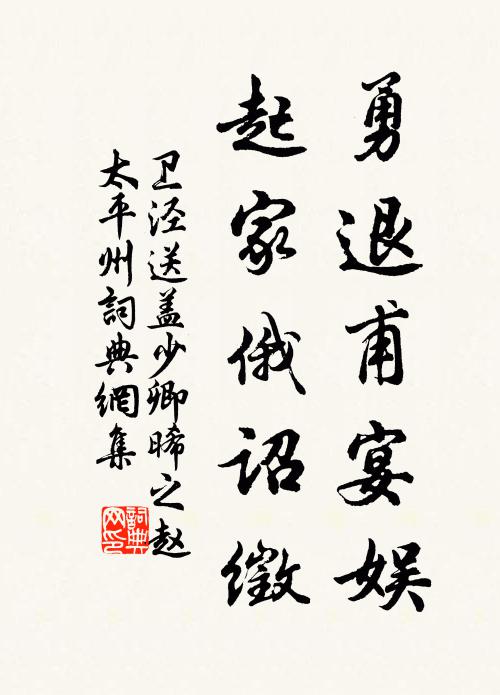 勇退甫宴娱
起家俄诏徵
卫泾送盖少卿晞之赵
太平州詞典網集
詞典网印